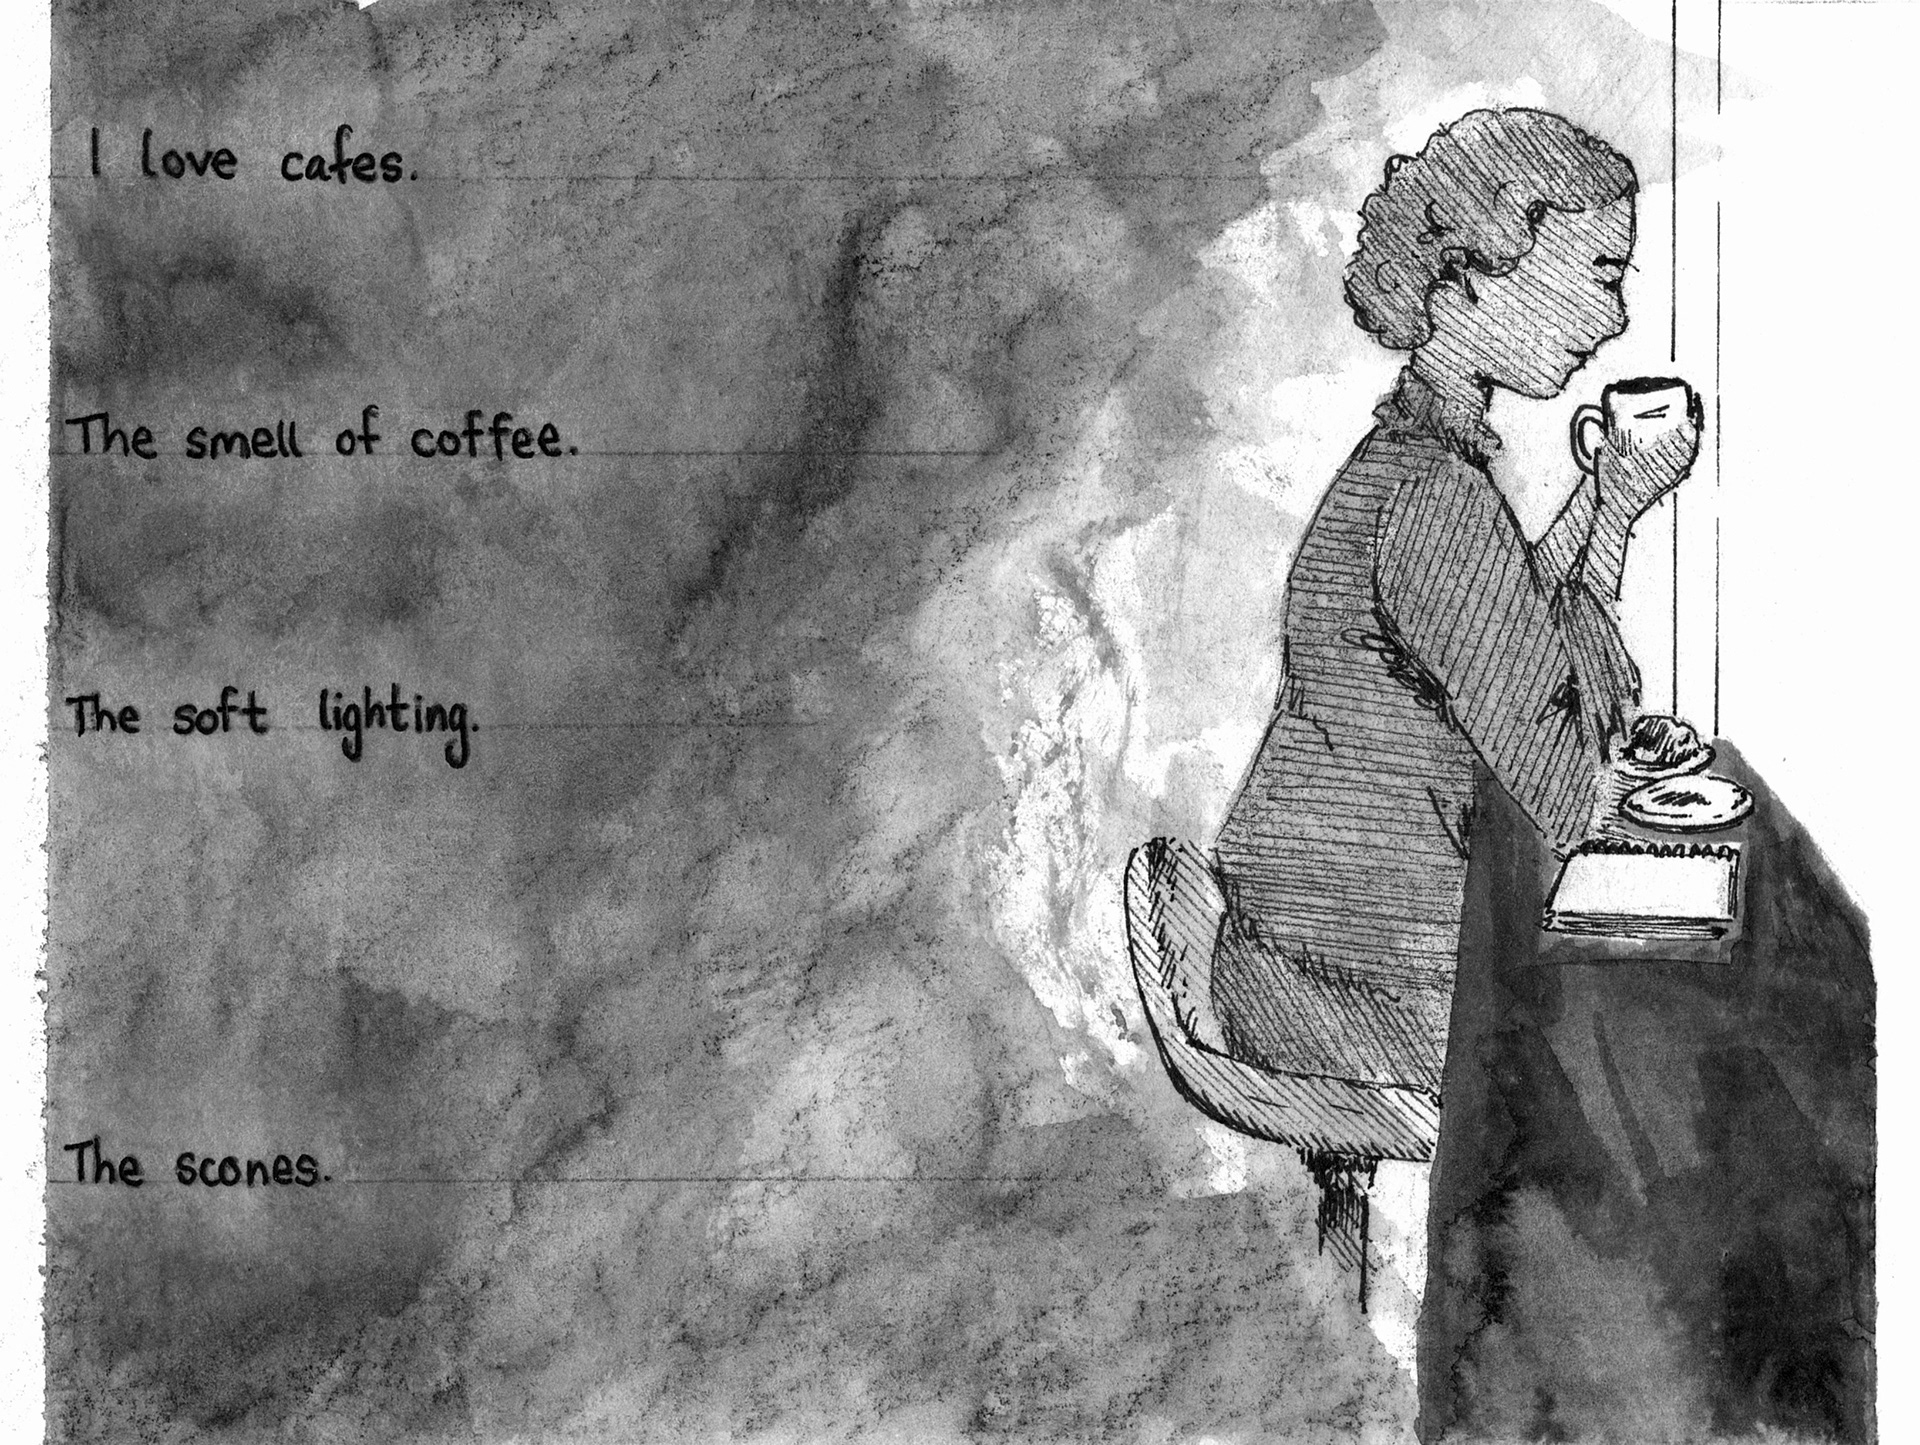 I love cafes.
The smell of coffee.
The soft lighting.
The scones.